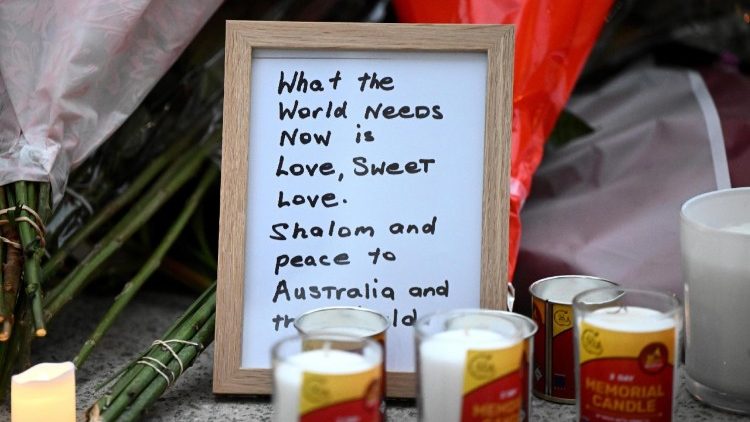 What the
World NEEDS
Now is
Love, SWEET
Love.
Shalom and
peace to
Australia and
MEMORIAL
CANDLE
MEMORIAL